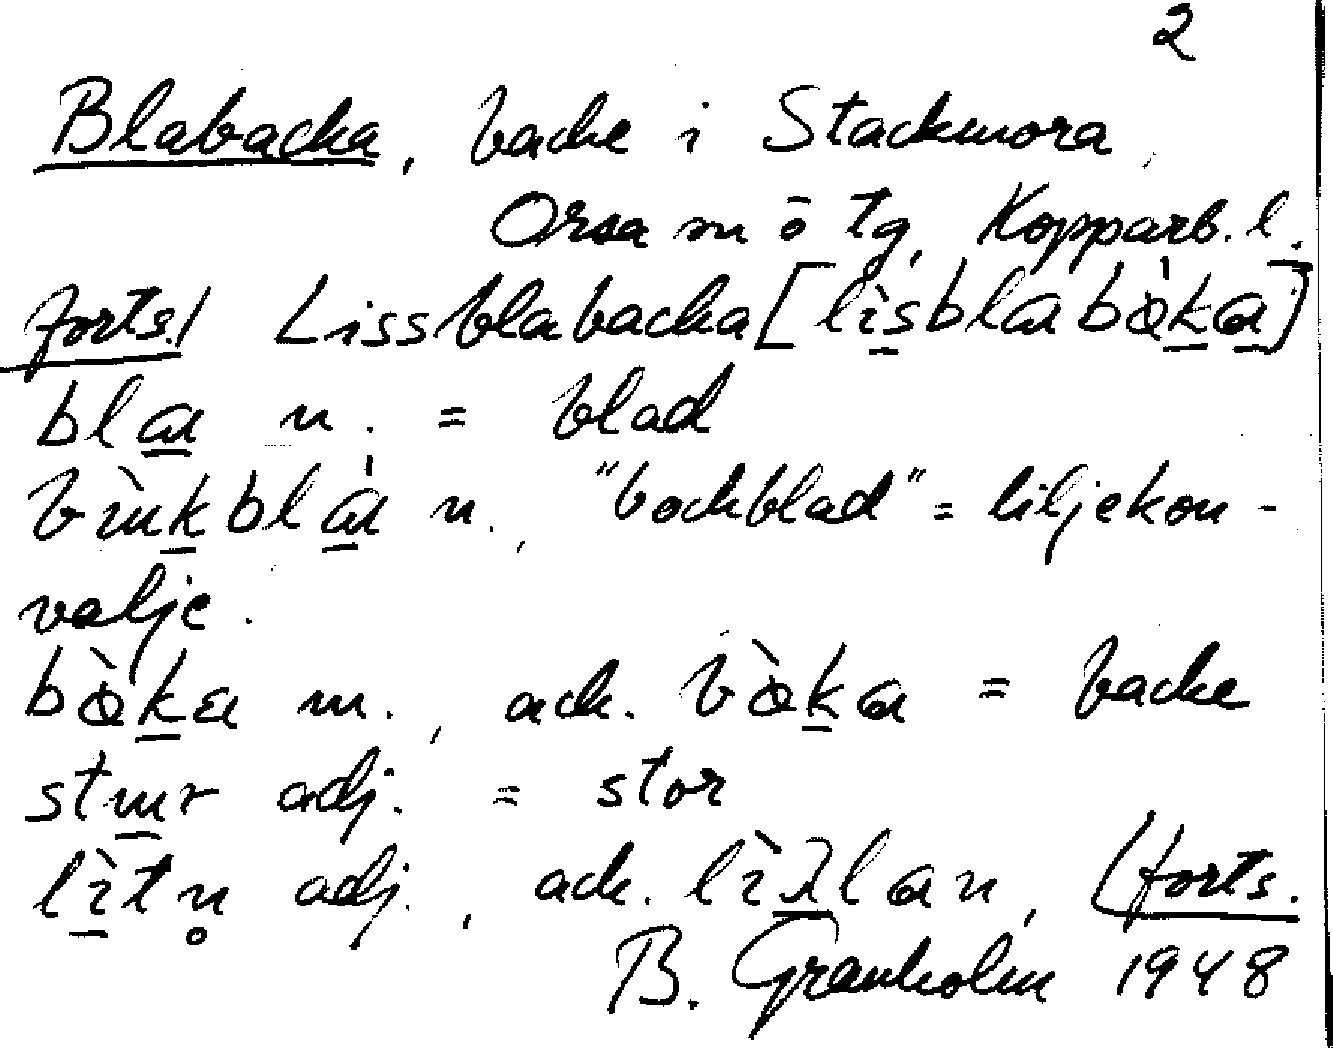 2
Blabacka, backe i Stackmora,
Orsa sn ö tg, Kopparb. l.
forts./ Lissblabacka [lìsblabàka]
bla n. = blad
bukbla n. "bockblad" = liljekon-
valje.
bàka m., ack. bàka = backe
stur adj. = stor
lìtn̥ adj., ack. lan, (forts.
B. Granholm 1948